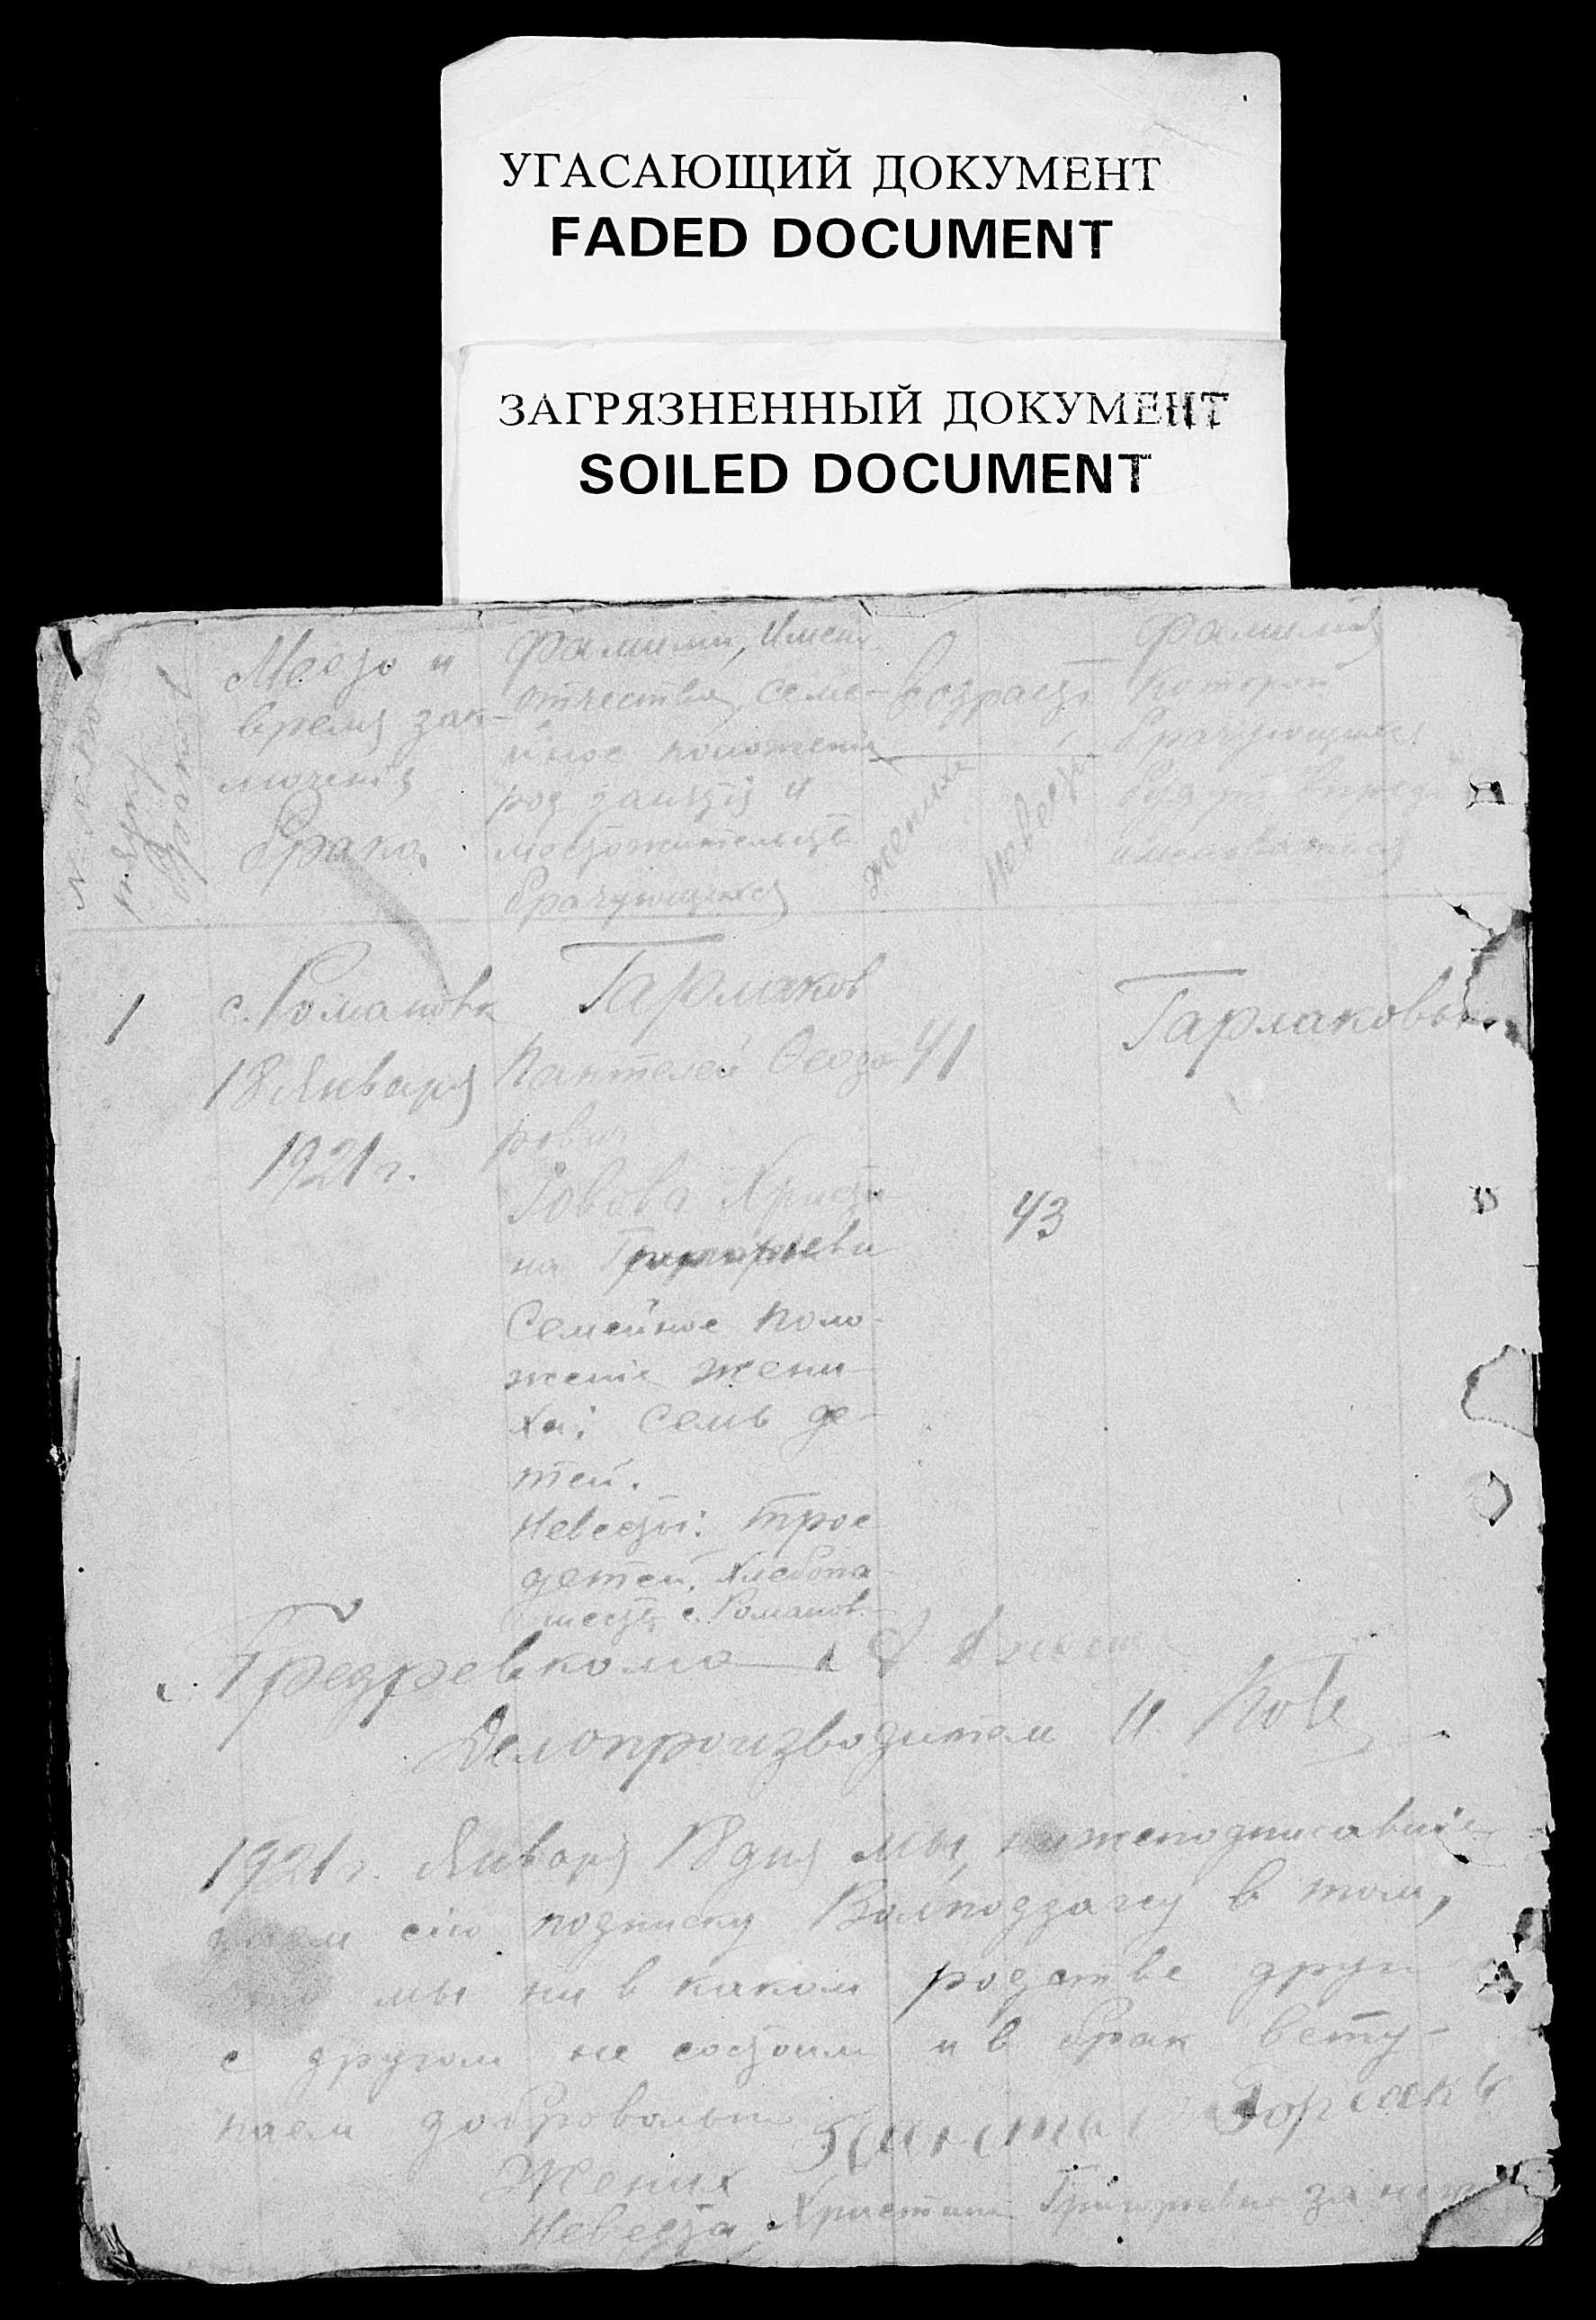 УГАСАЮЩИЙ ДОКУМЕНТ
FADED DOCUMENT
ЗАГРЯЗНЕННЫЙ ДОКУМЕНТ
SOILED DOCUMENT
Место и
время зак-
люченія
брака
Фамилии, Имена
отчества, семе-
йное положеніе
род занятій и
местожительство
брачующихся
Возраст
жениха
невесты
Фамилия
которой
брачующиеся
будут впредь
именоваться
1
с. Романовка
18 Января
1921 г.
Гарлаков
Пантелей Феодо
рович
41
Гарлаковы
Христи
на Григорьевна
43
Семейное поло-
женіе жени-
ха: Семь де-
тей.
Невесты: трое
детей. Хлебопа
шест. с. Романов.
Предревкома
Делопроизводитель И.
1921 г. Января 18 дня мы, нижеподписавшіе
даем сію подписку Волподотделу в том,
что мы ни в каком родстве друг
с другом не состоим и в брак всту-
паем добровольно
Жених
Невеста Христина Григорьевна за